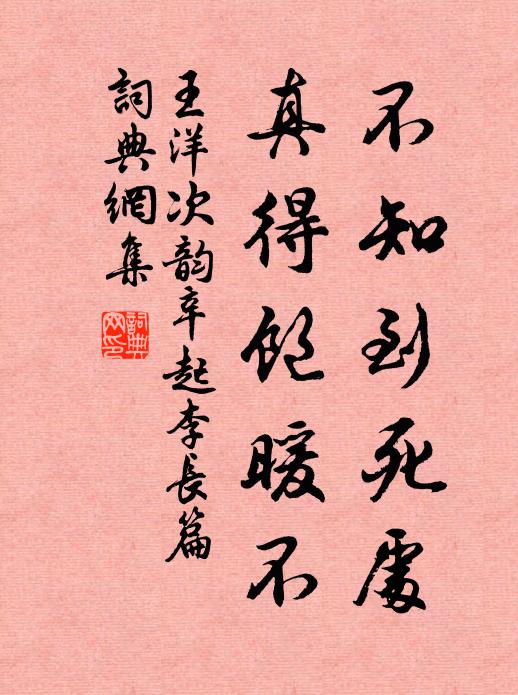 不知到死處
真得飽暖不
王洋次韵辛起李長篇
詞典網集
詞典网印